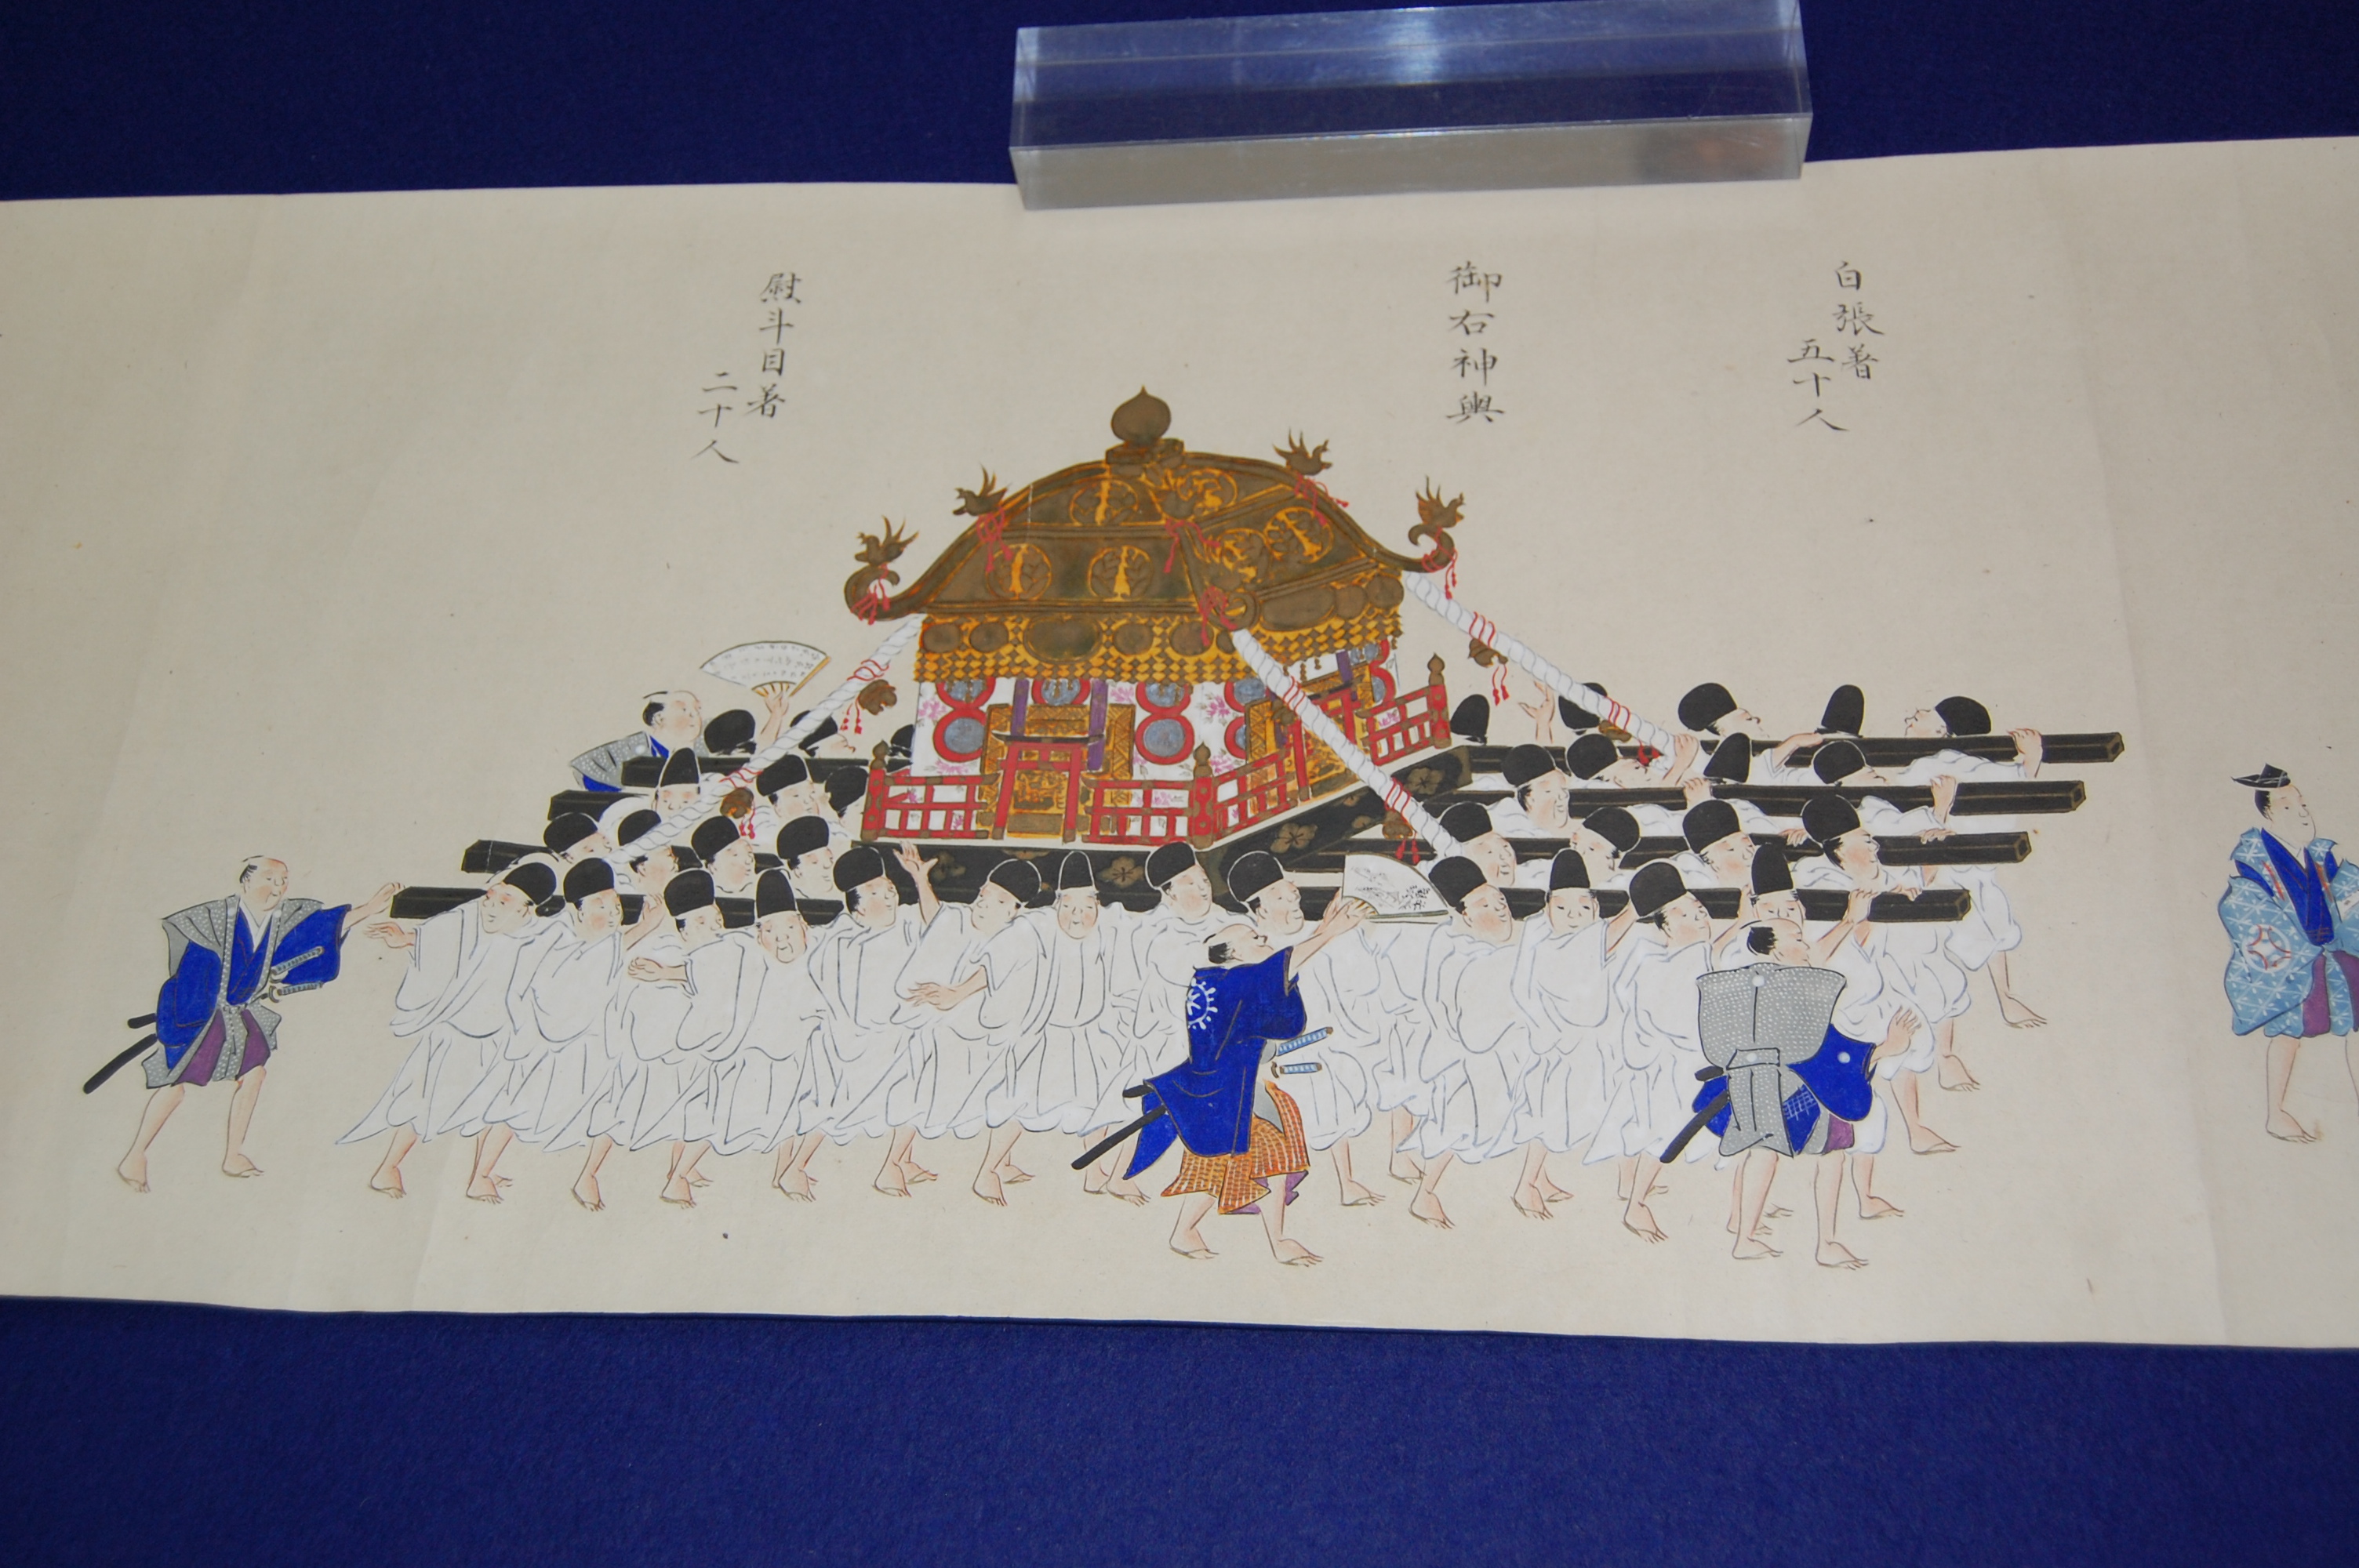 白張著
五十人
御右神輿
熨斗目著
二十人